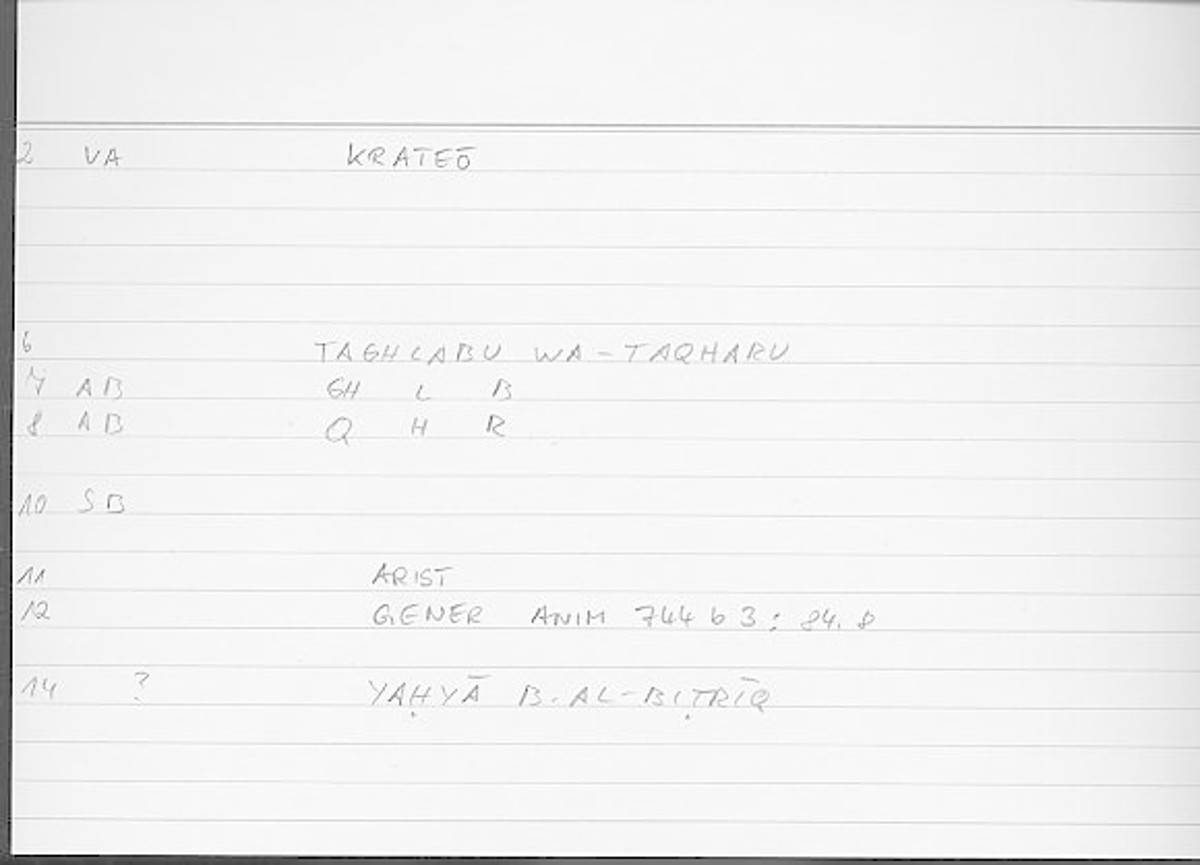 2 VA KRATEŌ
6 TAGHLABU WA-TAQHARU
7 AB GH L B
8 AB Q H R
10 SB
11 ARIST
12 GENER ANIM 744 b 3 : 84. 8
14 ? YAḤYĀ B. AL-BIṬRĪQ